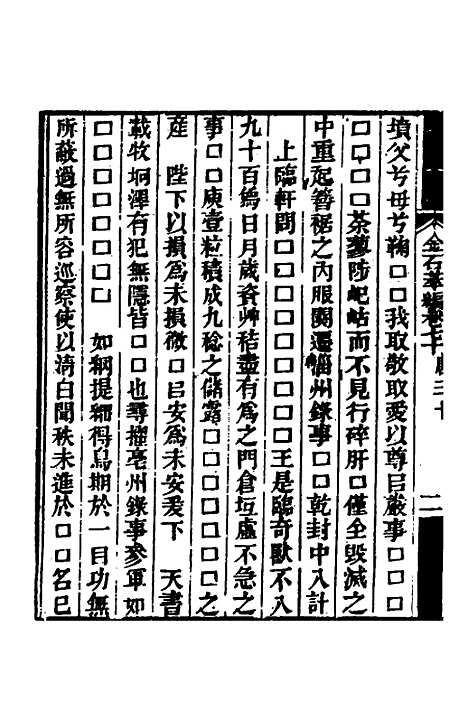 墳父兮母兮鞠□□我取敬取愛以尊㠯嚴事□□□
□□□□荼蓼陟屺岵而不見行碎肝□僅全毀滅之
中重起簪裾之內服闋遷緇州錄事□□乾封中入計
上臨軒問□□□□□□□□□王是臨奇獸不入
九十百鵷日月歲資艸秸盡有爲之門倉垣虛不急之
事□□庾壹粒積成九稔之儲露□□□□□□□之
產 陛下以損爲未損微□㠯安爲未安爰下 天書
載牧坰澤有犯無隱皆□□也尋擢亳州錄事叅軍如
□□□□□□□□ 如綱提綱得鳥期於一目功無
所蔽過無所容巡察使以淸白聞秩未進於□□名已
金石萃編卷七十 唐三十 二